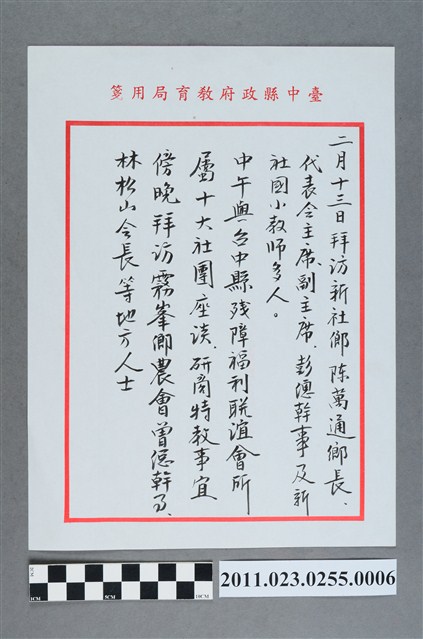 臺中縣政府教育局用箋
二月十三日拜访新社鄉陈萬通鄉長、
代表会主席、副主席、彭總幹事及新
社国小教师多人。
中午與台中縣残障福利联谊會所
屬十大社團座谈、研商特教事宜
傍晚拜访霧峯鄉農會曾總幹事、
林松山会長等地方人士
1CM 5CM 10CM
2011.023.0255.0006